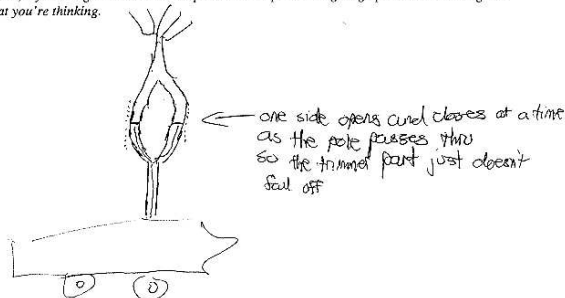 at you're thinking.
one side opens and closes at a time
as the pole passes thru
so the trimmer part just doesn't
fall off